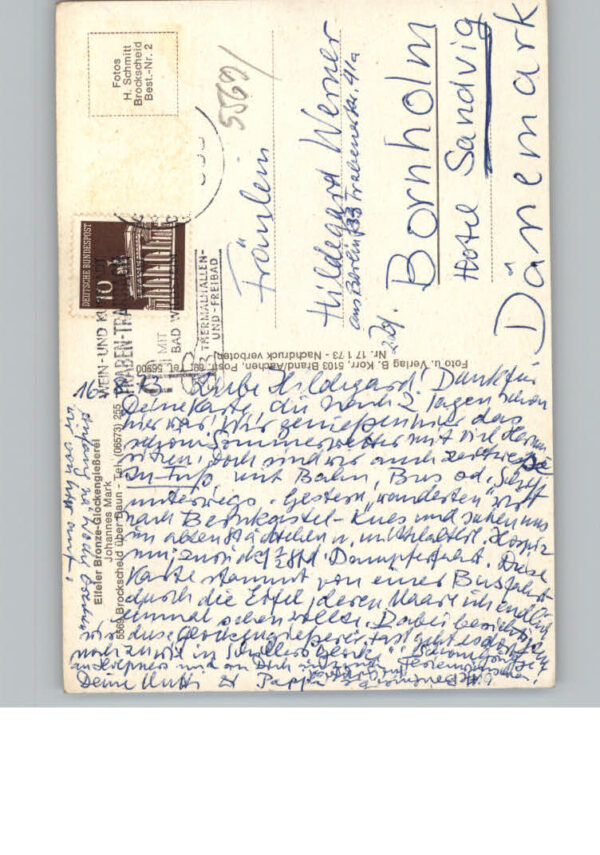 Fotos
H. Schmitt
Brockscheid
Best.-Nr. 2
5569/
DEUTSCHE BUNDESPOST
10
WEIN- UND
TRABEN-TRA
MIT
BAD
THERMALHALLEN-
UND-FREIBAD
Fräulein
Hildegard Werner
aus Berlin 33 Trabenerstr. 41a
zzt.
Bornholm
Hotel Sandvig
Dänemark
Foto u. Verlag B. Korr, 5103 Brand/Aachen, Postf. Tel. 56900
Nr. 17 1 73 - Nachdruck verboten
Eifeler Bronze-Glockengießerei
Johannes Mark
5569 Brockscheid über Daun - Tel. (06573) 255
16. 73 Liebe Hildegard! Dank für
Deine Karte, die nach 2 Tagen schon
hier war. Wir genießen hier das
schöne Sommerwetter mit viel
sitzen. Doch sind wir auch zeitweise
zu Fuß, mit Bahn, Bus od. Schiff
unterwegs. Gestern "wanderten" wir
nach Bernkastel-Kues und sahen uns
im alten Städtchen u. mittelalterl. Hospiz
um, zurück Std. Dampferfahrt. Diese
Karte stammt von einer Busfahrt
durch die Eifel, deren Maare ich endlich
einmal sehen wollte. Dabei besichtigten
wir diese Glockengießerei, fast geht es dort
noch zu wie in Schillers "Glocke".
Deine Mutti u. Pappi